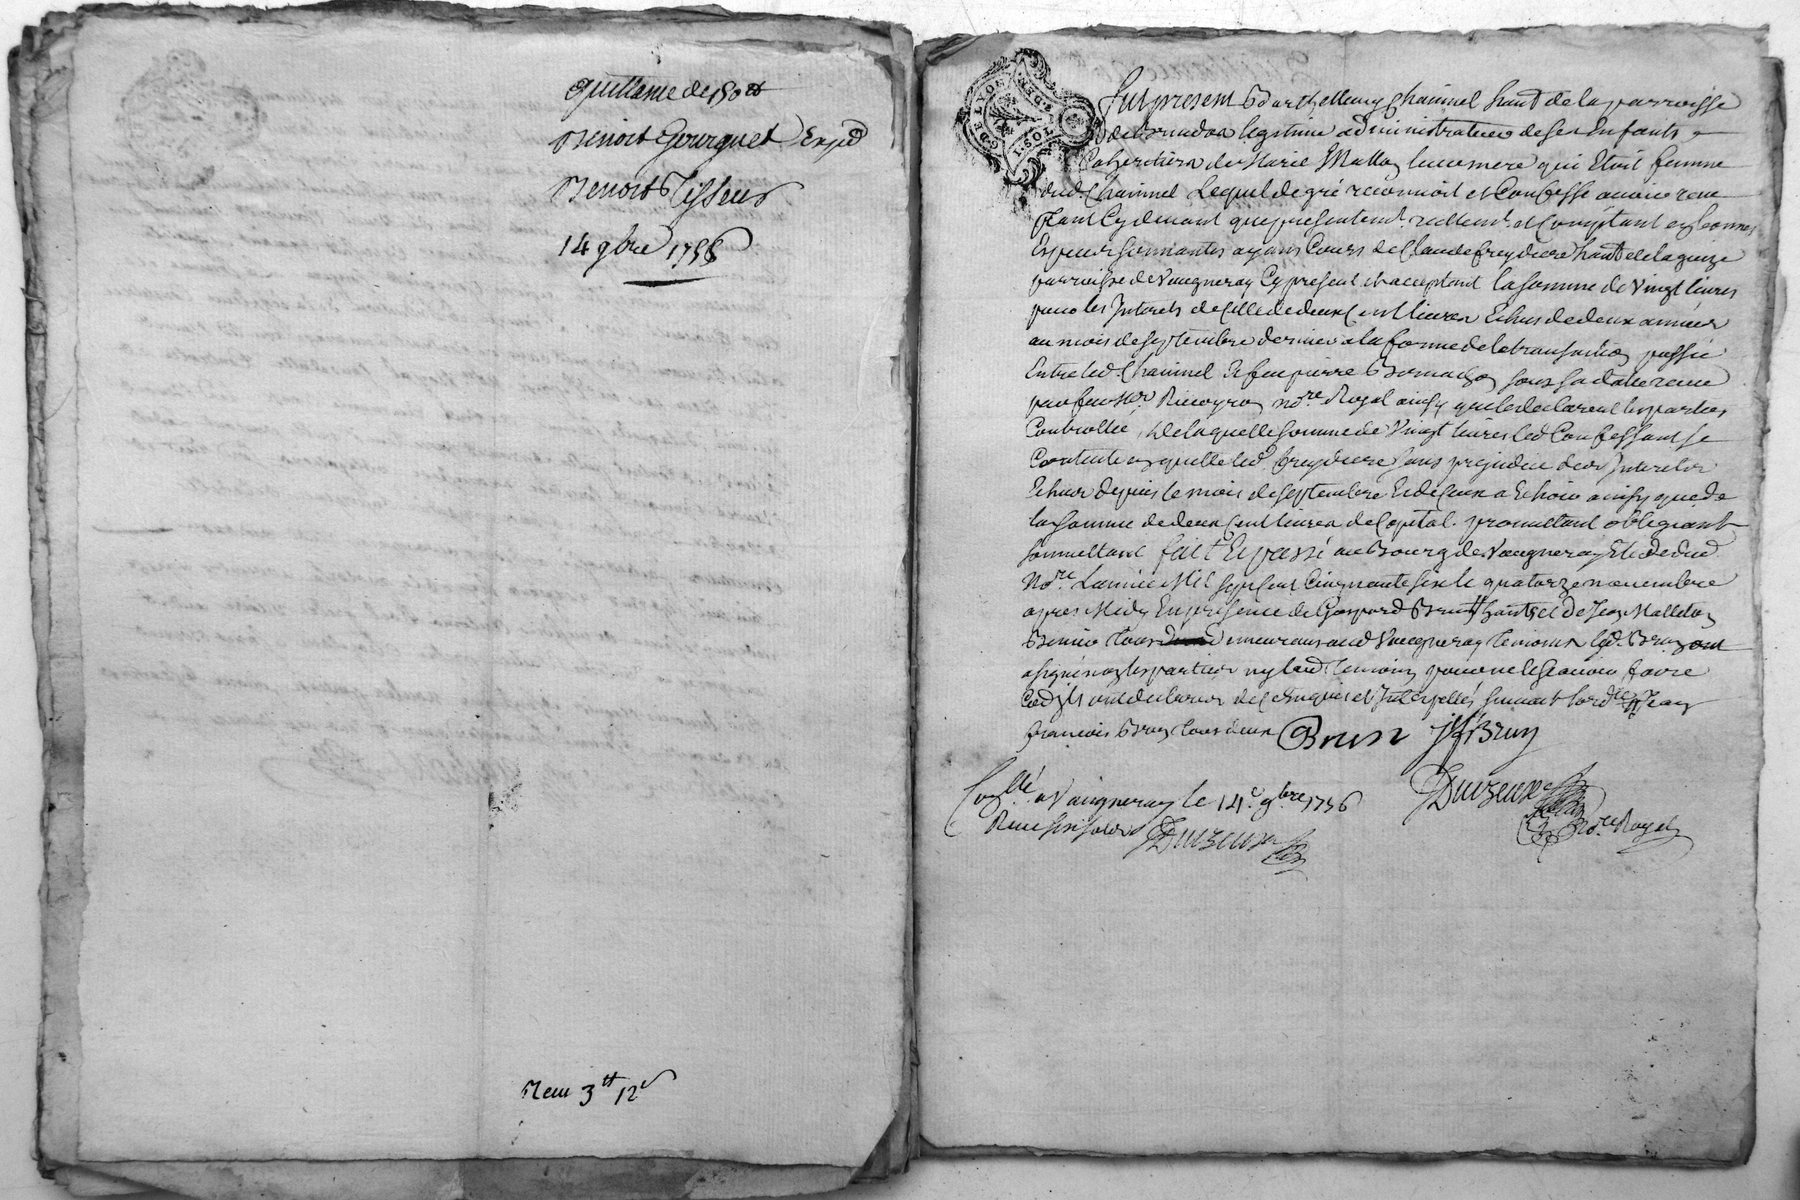 quittance de 150tt
Benoit Gourguet Exped
Benoit Tisseur
14 9bre 1756
Receu 3tt 12s
G. DE LYON
Fut present Barthellemy Chainnel habt de la parroisse
de legitime administrateur de ses Enfants
Coheritiers de Marie leur mere qui Etoit femme
dud. Chainnel Lequel de gré reconnoit et Confesse avoir receu
tant Cy devant que presentemt. reellemt. et Comptant en bonnes
Especes sonnantes ayans Cours de Claude freydiere habt de
parroisse de Vaugneray Cy present et acceptant la somme de Vingt livres
pour les Interets de Celle de deux Cent livres Echus de deux années
au mois de septembre dernier a la forme de la transaction passée
Entre led. Chainnel Et feu pierre sous sa datte receue
par feu Me. nore Royal ainsy que le declarent les parties
Controllée, De laquelle somme de Vingt livres led Confessant se
Contente en quitte led. freydiere sans prejudice des Interets
Echus depuis le mois de septembre Et de Ceux a Echoir ainsy que de
la somme de deux Cent livres de Capital. promettant obligeant
soumettant fait Et passé au Bourg de Vaugneray Etude dud.
Nore. L'année Mil sept Cent Cinquante six le quatorze novembre
apres Midy En presence de Gaspard Brun habts et de Jean
tous demeurans aud Vaugneray temoins led. Brun
a signé non les parties ny led temoin pour ne le sçavoir faire
Cedits ont declarer de Ce Enquis et Interpellés suivant l'ordce Jean
françois Brun tous deux Brun Jf Brun
Conllé a Vaugneray le 14e. 9bre 1756
Receu six sols
nore Royal